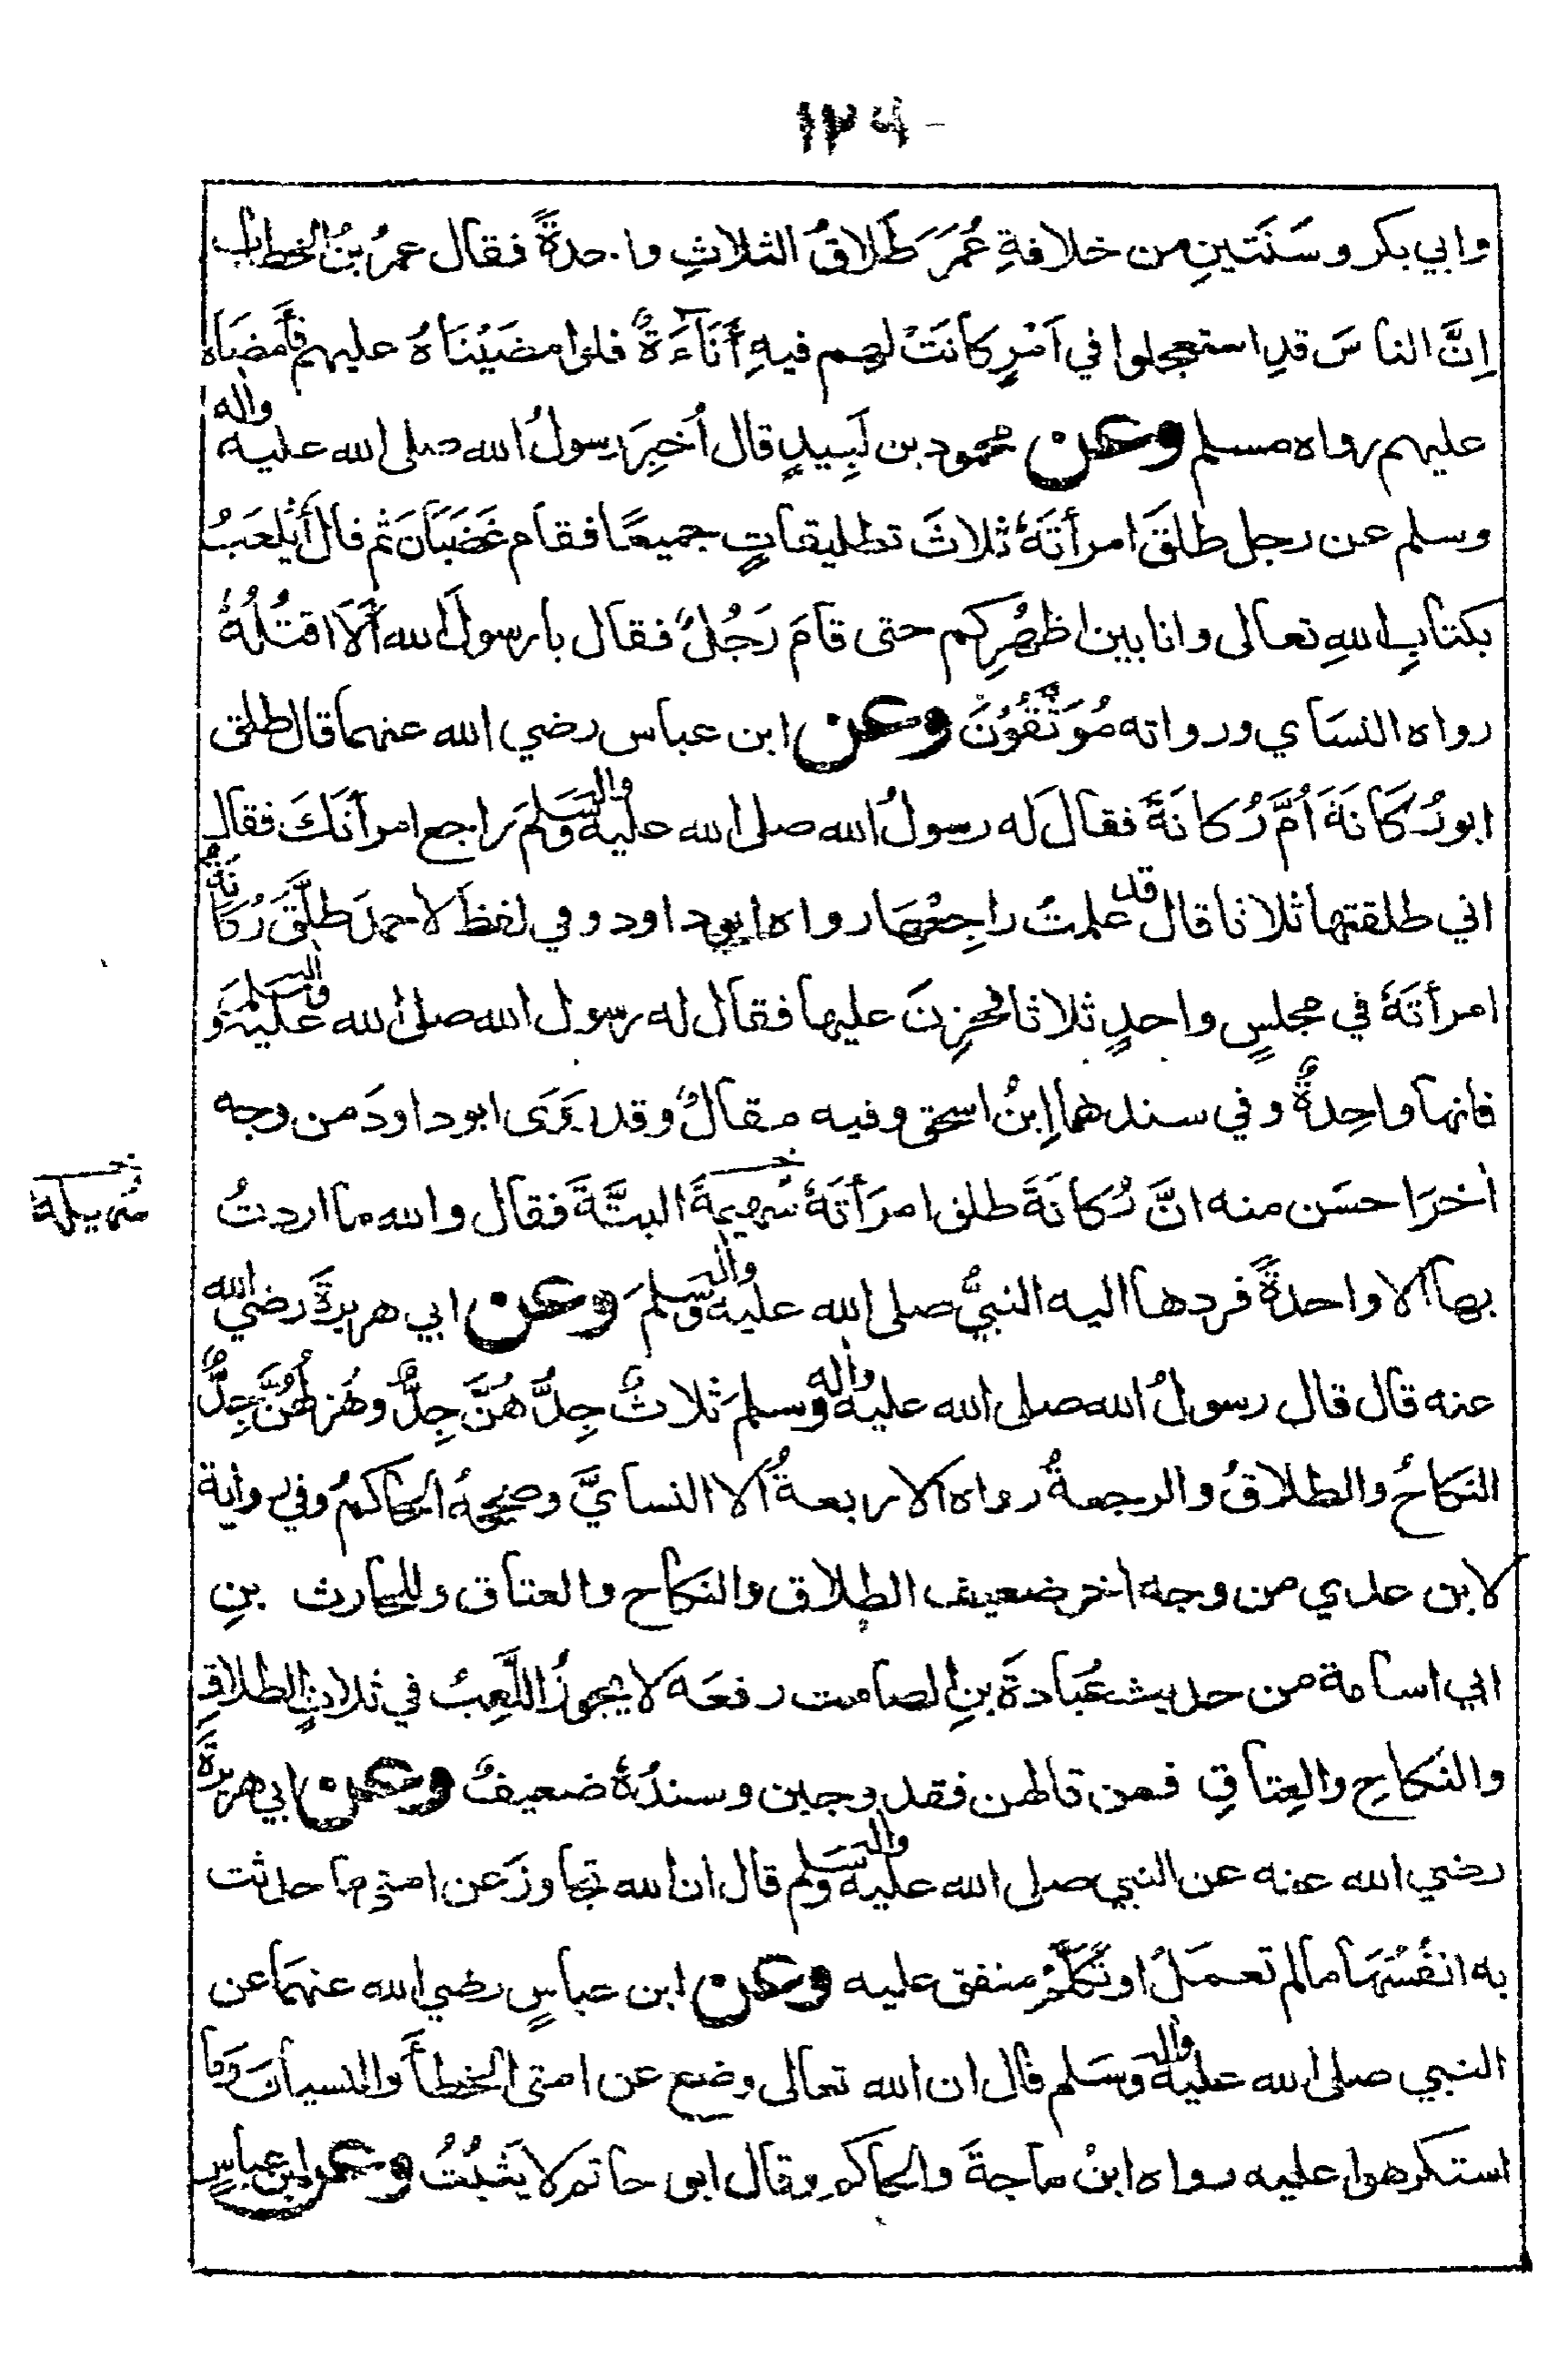 ١٣٦-
وابي بكر وسَنَتينِ من خلافةِ عُمَرَ طَلاقُ الثلاثِ واحدةً فقال عمرُ بنُ الخطاب
اِنَّ الناسَ قدِ استعجلوا في اَمْرٍ كانَتْ لهم فيهِ أَنَآءَةٌ فلوا مضَيْنَاهُ عليهم فأَمضَاه
عليهم رواه مسلم وعن محمود بن لَبِيدٍ قال اُخبِرَ رسولُ الله صلى الله عليه واله
وسلم عن رجل طلقَ امرأتَهُ ثلاثَ تطليقاتٍ جميعًا فقام غَضَبَانَ ثم قال أَيُلعَبُ
بكتابِ اللهِ تعالى وانا بين اظهُرِكم حتى قامَ رَجُلٌ فقال يا رسولَ الله اَلَا اقتُلُهُ
رواه النسَاي ورواته مُوَثَّقُوْنَ وعن ابن عباس رضي الله عنهما قال طلق
ابورُكَانَةَ اُمَّ رُكانَةَ فقال لَه رسولُ الله صلى الله عليه واله وسَلم راجع امرأتَكَ فقال
اني طلقتها ثلاثا قال قد علمتُ راجِعْهَا رواه ابوداود وفي لفظ لاحمدَ طلَّقَ رُكَانَةُ
امرأتَهُ في مجلسٍ واحدٍ ثلاثا فحَزِنَ عليها فقال له رسول الله صلى الله عليه واله وسلم
فانها واحِدةٌ وفي سندهما اِبنُ اسحٰق وفيه مقالٌ وقد رَوَى ابوداودَ من وجه
اٰخرَ احسَن منه انَّ رُكانَةَ طلق امرَأتَهُ سُهيمةَ البتَّةَ فقال والله ما اردتُ
سُهيلة
بها الا واحدةً فردها اليه النبيُّ صلى الله عليه واله وسلمَ وعن ابي هريرةَ رضي الله
عنه قال قال رسولُ الله صلى الله عليه واله وسلمَ ثلاثٌ جِدُّهُنَّ جِدٌّ وهَزلُهُنَّ جِدٌّ
النكاحُ والطلاقُ والرجعةُ رواه الاربعةُ الا النسايَّ وصححهُ الحاكمُ وفي رواية
لابن عدي من وجه اٰخر ضعيف الطلاق والنكاح والعتاق وللحارث بنِ
ابي اسامة من حديث عُبَادةَ بنِ الصامت رفعَه لا يجوزُ اللَّعِبُ في ثلاثٍ الطلاقِ
والنكاحِ والعِتاقِ فمن قالهن فقد وجبن وسندُهُ ضعيفٌ وعن ابي هريرةَ
رضي الله عنه عن النبي صلى الله عليه واله وسلم قال ان الله تجاوزَ عن امتي ما حدثت
به انفُسُهَا ما لم تعملْ او تكلَّمْ متفق عليه وعن ابن عباسٍ رضي الله عنهما عن
النبي صلى الله عليه واله وسَلم قال ان الله تعالى وضع عن امتي الخطأَ والنسيانَ وَما
استكرهوا عليه رواه ابنُ ماجةَ والحاكم وقال ابي حاتم لا يثبُتُ وعن ابن عباسٍ